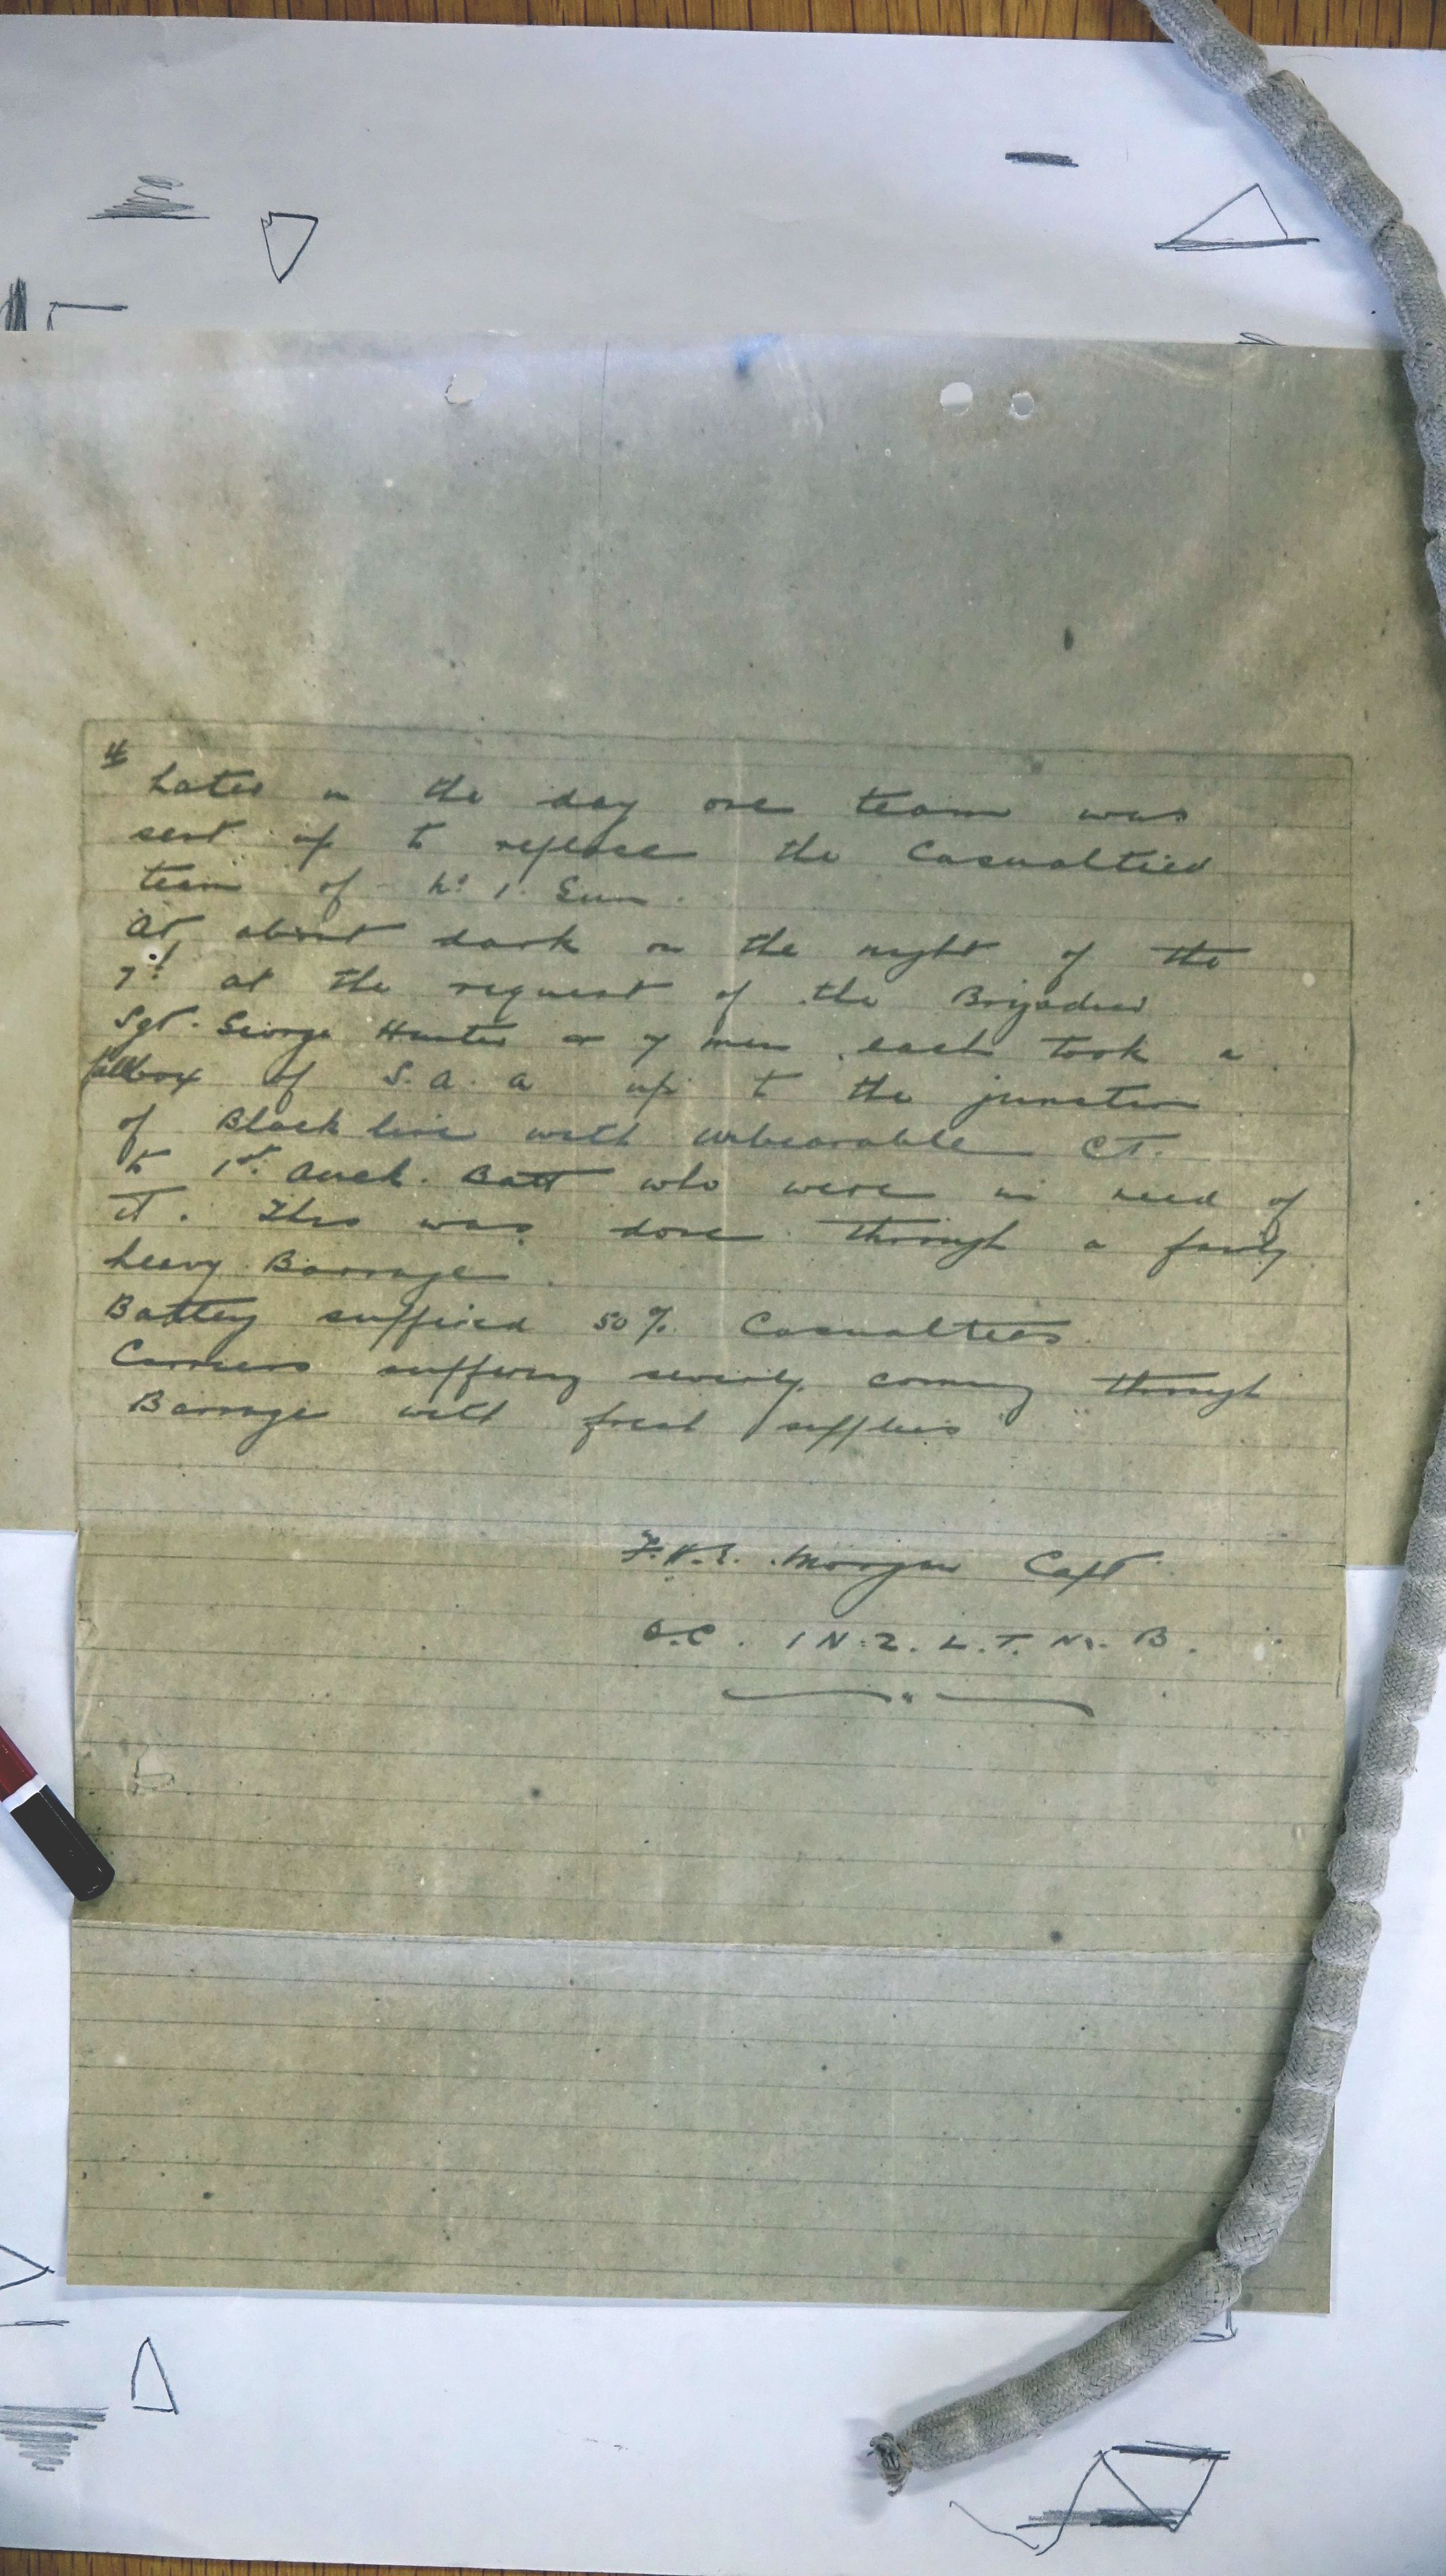 4
Later in the day one team was
sent up to replace the Casualtied
team of No 1. Gun.
At about dark on the night of the
7th at the request of the Brigadier
Sgt. George Hunter & 7 men each took a
of S.A.A up to the junction
of Black line with Unbearable C.T.
to 1st Auck. Batt who were in need of
it. This was done through a fairly
heavy Barrage.
Battery suffered 50% Casualties.
Carriers suffering severely coming through
Barrage with fresh supplies
F.K.E. Morgan Capt
O.C. 1 N.Z. L.T.M.B.